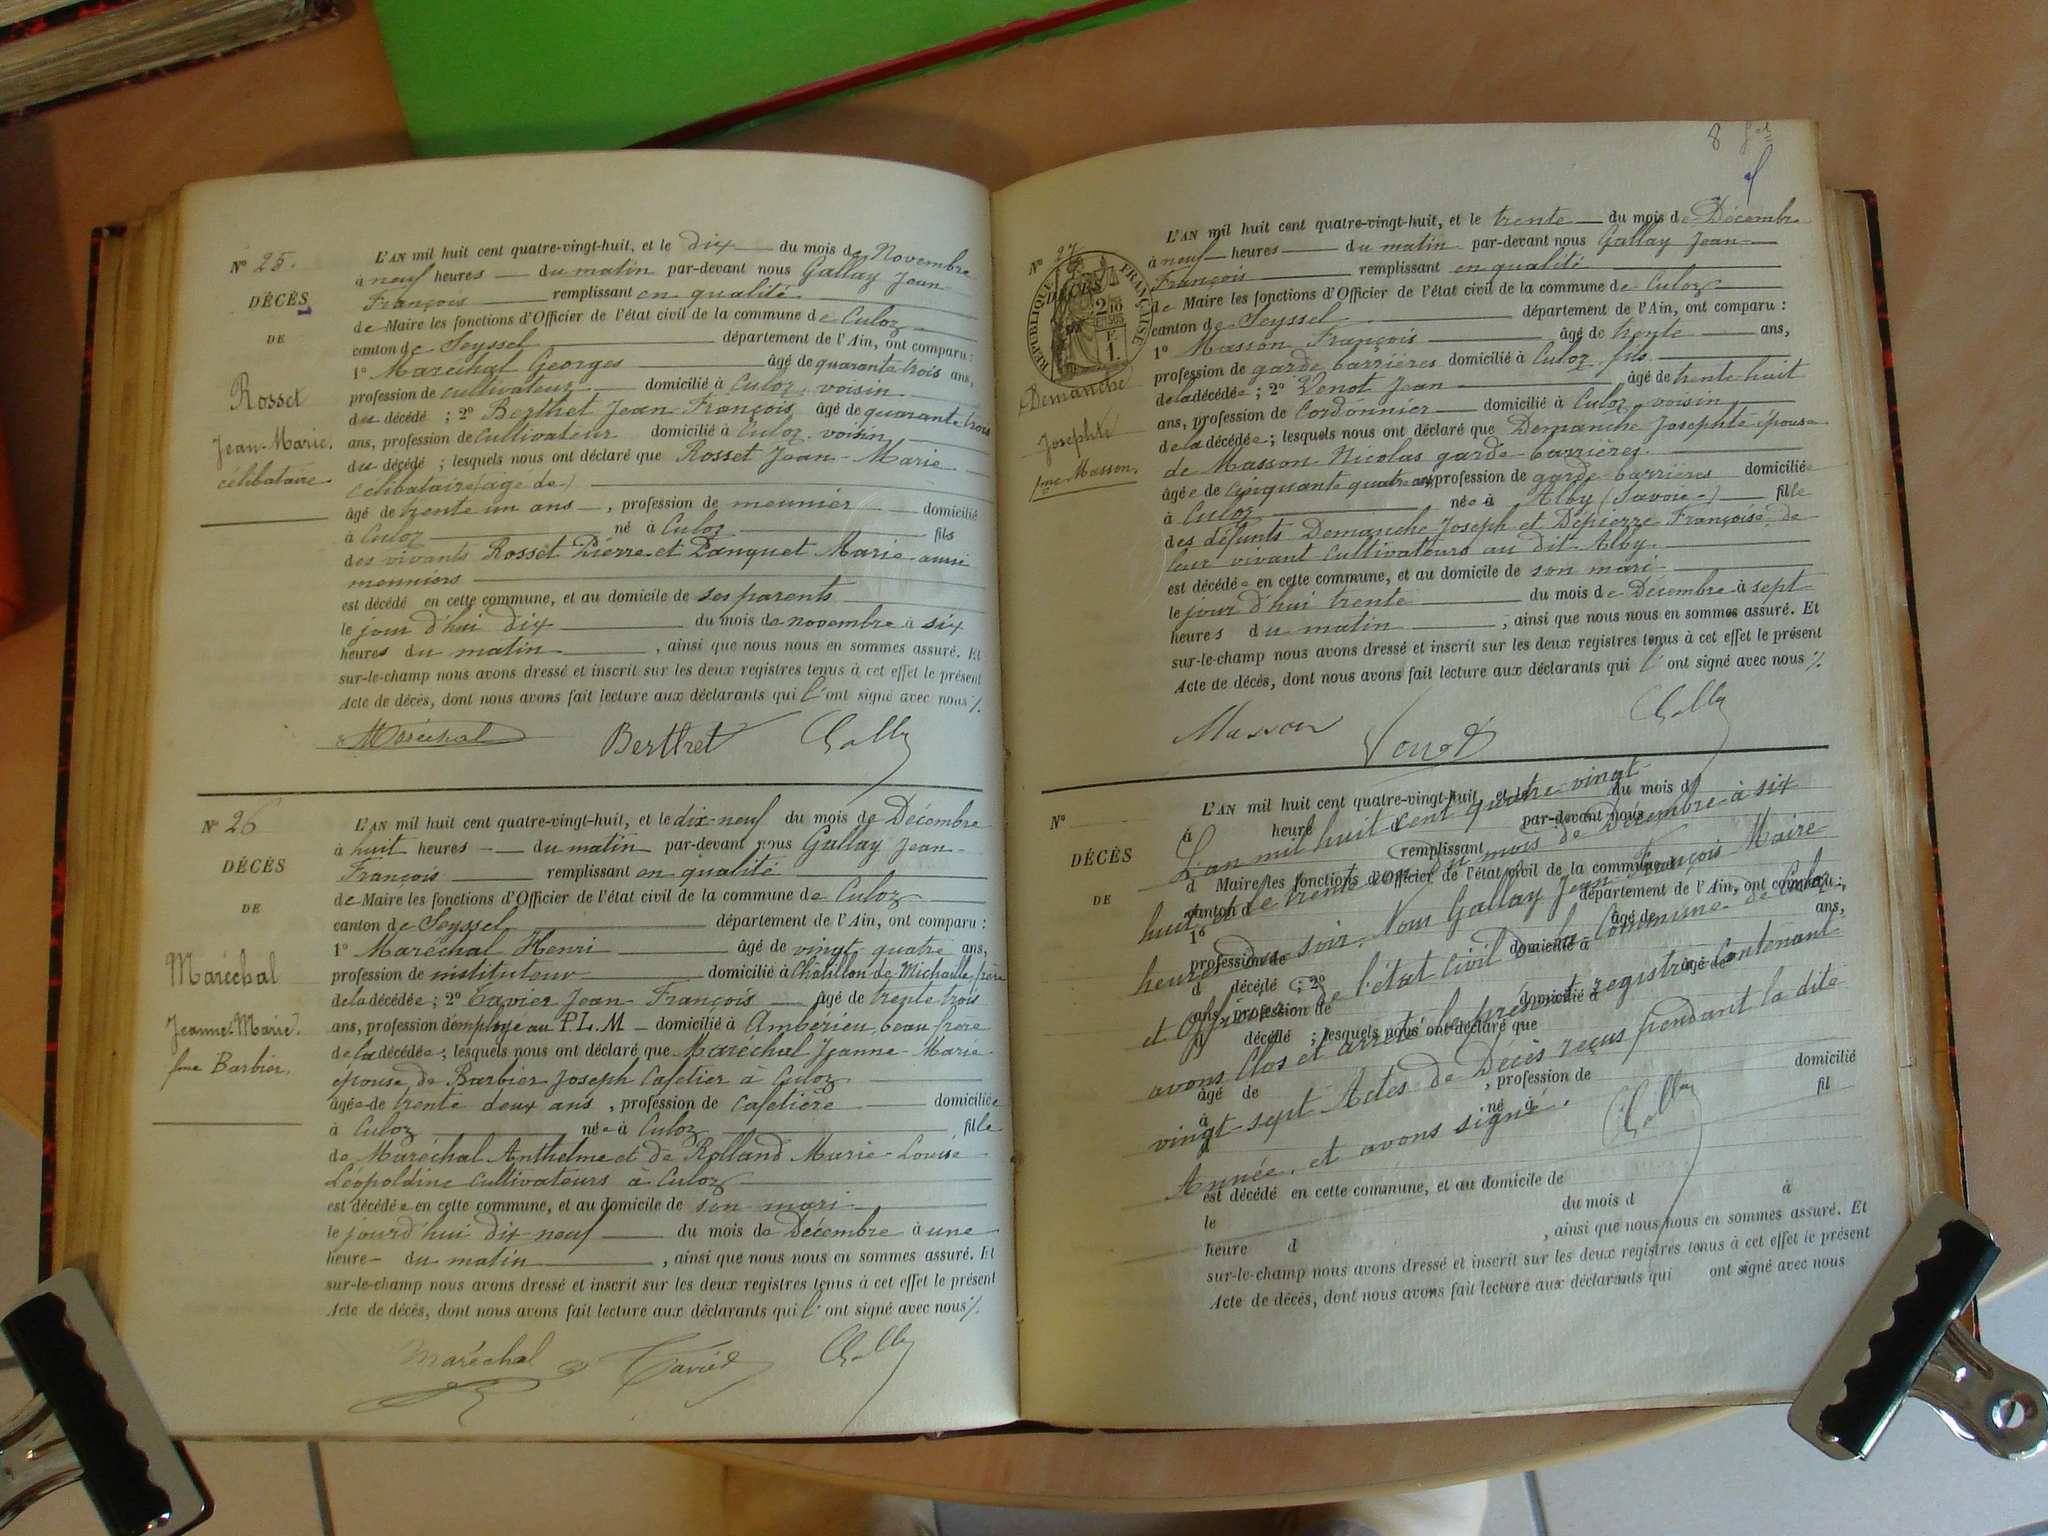 N° 25.
DÉCÈS
DE
Rosset
Jean-Marie.
célibataire
L'AN mil huit cent quatre-vingt-huit, et le dix du mois de Novembre
à neuf heures du matin par-devant nous Gallay Jean
François remplissant en qualité
de Maire les fonctions d'Officier de l'état civil de la commune de Culoz
canton de Seyssel département de l'Ain, ont comparu :
1° Maréchal Georges âgé de quarante trois ans,
profession de cultivateur domicilié à Culoz, voisin
du décédé ; 2° Berthet Jean François âgé de quarante trois
ans, profession de cultivateur domicilié à Culoz, voisin
du décédé ; lesquels nous ont déclaré que Rosset Jean-Marie
célibataire (agé de)
âgé de trente un ans, profession de meunier domicilié
à Culoz né à Culoz fils
des vivants Rosset Pierre et Panquet Marie aussi
meuniers
est décédé en cette commune, et au domicile de ses parents
le jour d'hui dix du mois de novembre à six
heures du matin, ainsi que nous nous en sommes assuré. Et
sur-le-champ nous avons dressé et inscrit sur les deux registres tenus à cet effet le présent
Acte de décès, dont nous avons fait lecture aux déclarants qui l'ont signé avec nous ./.
Maréchal Berthet Gallay
N° 26
DÉCÈS
DE
Maréchal
Jeanne-Marie.
fme Barbier.
L'AN mil huit cent quatre-vingt-huit, et le dix-neuf du mois de Décembre
à huit heures du matin par-devant nous Gallay Jean-
François remplissant en qualité
de Maire les fonctions d'Officier de l'état civil de la commune de Culoz
canton de Seyssel département de l'Ain, ont comparu :
1° Maréchal Henri âgé de vingt quatre ans,
profession de instituteur domicilié à Châtillon de Michaille frère
de la décédée ; 2° Tavier Jean-François âgé de trente trois
ans, profession d'employé au P.L.M domicilié à Ambérieu, beau frère
de la décédée ; lesquels nous ont déclaré que Maréchal Jeanne-Marie
épouse de Barbier Joseph Cafetier à Culoz
âgée de trente deux ans, profession de Cafetière domiciliée
à Culoz née à Culoz fille
de Maréchal Anthelme et de Rolland Marie-Louise
Léopoldine Cultivateurs à Culoz
est décédée en cette commune, et au domicile de son mari
le jourd'hui dix neuf du mois de Décembre à une
heure du matin, ainsi que nous nous en sommes assuré. Et
sur-le-champ nous avons dressé et inscrit sur les deux registres tenus à cet effet le présent
Acte de décès, dont nous avons fait lecture aux déclarants qui l'ont signé avec nous ./.
Maréchal Tavier Gallay
8
N° 27
DÉCÈS
RÉPUBLIQUE FRANÇAISE
Demanche
Josephte
fme Masson.
L'AN mil huit cent quatre-vingt-huit, et le trente du mois de Décembre
à neuf heures du matin par-devant nous Gallay Jean-
François remplissant en qualité
de Maire les fonctions d'Officier de l'état civil de la commune de Culoz
canton de Seyssel département de l'Ain, ont comparu :
1° Masson François âgé de trente ans,
profession de garde barrières domicilié à Culoz, fils
de la décédée ; 2° Venot Jean âgé de trente huit
ans, profession de Cordonnier domicilié à Culoz, voisin
de la décédée ; lesquels nous ont déclaré que Demanche Josephte épouse
de Masson Nicolas garde-barrières.
âgée de cinquante quatre ans, profession de garde-barrières domiciliée
à Culoz née à Alby (Savoie) fille
des défunts Demanche Joseph et Dépierre Françoise de
leur vivant cultivateurs au dit Alby.
est décédée en cette commune, et au domicile de son mari
le jour d'hui trente du mois de Décembre à sept
heures du matin ; ainsi que nous nous en sommes assuré. Et
sur-le-champ nous avons dressé et inscrit sur les deux registres tenus à cet effet le présent
Acte de décès, dont nous avons fait lecture aux déclarants qui l'ont signé avec nous ./.
Masson Venot Gallay
N°
DÉCÈS
DE
L'AN mil huit cent quatre-vingt-huit, et le du mois d
à heure d par-devant nous
remplissant
d Maire les fonctions d'Officier de l'état civil de la commune d
canton d département de l'Ain, ont comparu :
1° âgé de ans,
profession de domicilié à
d décédé ; 2° âgé de
ans, profession de domicilié à
d décédé ; lesquels nous ont déclaré que
âgé de , profession de domicilié
à né à fil
L'an mil huit cent quatre vingt
huit et le trente un du mois de Décembre à six
heures du soir, Nous Gallay Jean-François Maire
et Officier de l'état civil de la Commune de Culoz
avons Clos et arrêté le présent registre Contenant
vingt-sept Actes de Décès reçus pendant la dite
Année, et avons signé.
Gallay
est décédé en cette commune, et au domicile de
le du mois d à
heure d , ainsi que nous nous en sommes assuré. Et
sur-le-champ nous avons dressé et inscrit sur les deux registres tenus à cet effet le présent
Acte de décès, dont nous avons fait lecture aux déclarants qui ont signé avec nous